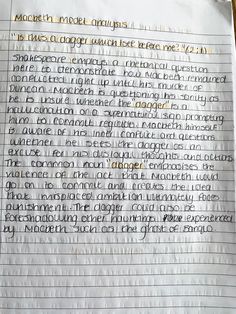 Macbeth model analysis
"Is this a dagger which I see before me?" (2:1)
Shakespeare employs a rhetorical question
here to demonstrate how Macbeth remained
conflicted right up until his murder of
Duncan. Macbeth is questioning his sanity as
he is unsure whether the "dagger" is a
hallucination or a supernatural sign prompting
him to commit regicide. Macbeth himself
is aware of his inner conflict and questions
whether he sees the dagger as an
excuse for his disloyal thoughts and actions.
The common noun "dagger" emphasises the
violence of the act that Macbeth would
go on to commit and creates the idea
that misplaced ambition ultimately faces
punishment. The dagger could also be
foreshadowing other hauntings experienced
by Macbeth such as the ghost of Banquo